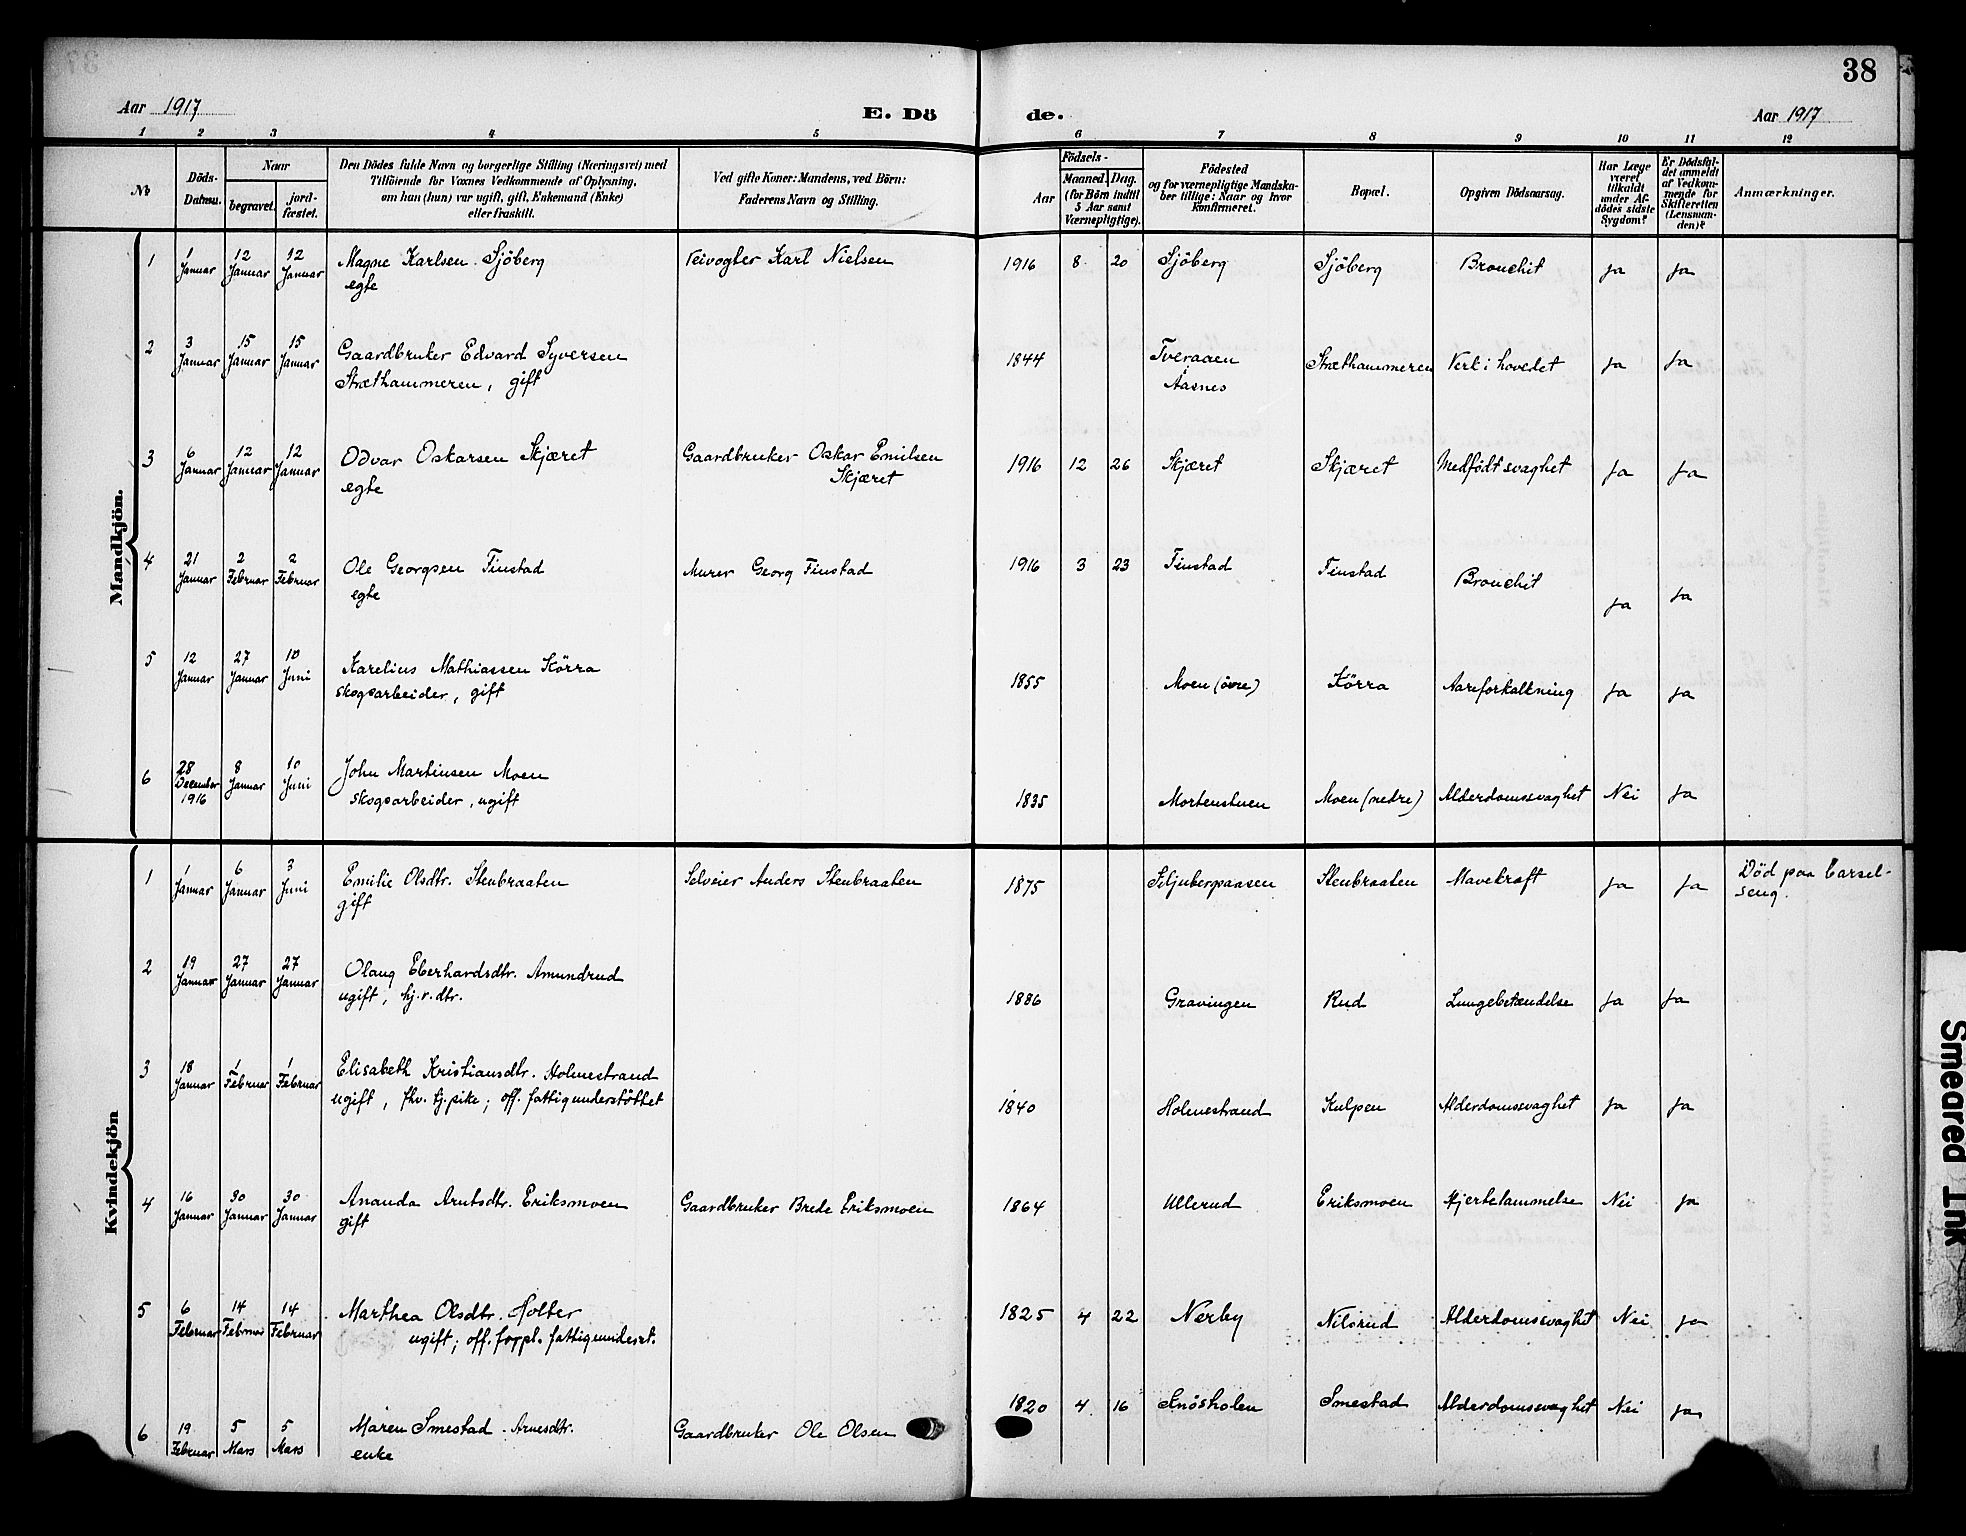 38
Aar 1917 E. Dö de. Aar 1917
1 2 3 4 5 6 7 8 9 10 11 12
№
Döds-Datum.
Naar
begravet.
jord-fæstet.
Den Dödes fulde Navn og borgerlige Stilling (Næringsvei) med
Tilföiende for Voxnes Vedkommende af Oplysning,
om han (hun) var ugift, gift, Enkemand (Enke)
eller fraskilt.
Ved gifte Koner: Mandens, ved Börn:
Faderens Navn og Stilling.
Födsels-
Aar
Maaned. Dag.
(for Börn indtil
5 Aar samt
Værnepligtige).
Födested
og for værnepligtige Mandska-
ber tillige: Naar og hvor
konfirmeret.
Bopæl.
Opgiven Dödsaarsag.
Har Læge
været
tilkaldt
under Af-
dödes sidste
Sygdom?
Er Dödsfal-
det anmeldt
af Vedkom-
mende for
Skifteretten
(Lensman-
den)?
Anmærkninger.
Mandkjön.
1 1 Januar 12 Januar 12 Januar Magne Karlsen Sjöberg Veivogter Karl Nielsen 1916 8 20 Sjöberg Sjöberg Bronchit ja ja
egte
2 3 Januar 15 Januar 15 Januar Gaardbruker Edvard Syversen 1844 Tveraaen i Aasnes Stræthammeren Verk i hovedet ja ja
Stræthammeren, gift
3 6 Januar 12 Januar 12 Januar Odvar Oskarsen Skjæret Gaardbruker Oskar Emilsen Skjæret 1916 12 26 Skjæret Skjæret Medfödt svaghet ja ja
egte
4 21 Januar 2 Februar 2 Februar Ole Georgsen Finstad Murer Georg Finstad 1916 3 23 Finstad Finstad Bronchit ja ja
egte
5 12 Januar 27 Januar 10 Juni Karelius Mathiassen Körra 1855 Moen (övre) Körra Aareforkalkning ja ja
skogsarbeider, gift
6 28 December 1916 8 Januar 10 Juni John Martinsen Moen 1835 Mortenstuen Moen (nedre) Alderdomssvaghet Nei ja
skogsarbeider, ugift
Kvindekjön
1 1 Januar 6 Januar 3 Juni Emilie Olsdtr. Stenbraaten Selveier Anders Stenbraaten 1875 Siljubergaasen Stenbraaten Mavekræft ja ja Död paa barsel-
gift seng.
2 19 Januar 27 Januar 27 Januar Olaug Eberhardsdtr. Amundrud 1886 Gravingen Rud Lungebetændelse ja ja
ugift, hj.v. dtr.
3 18 Januar 1 Februar 1 Februar Elisabeth Kristiansdtr. Holmestrand 1840 Holmestrand Kulpen Alderdomssvaghet ja ja
ugift, fhv. tj.pike; off. fattigunderstöttet
4 16 Januar 30 Januar 30 Januar Ananda Arntsdtr. Eriksmoen Gaardbruker Brede Eriksmoen 1864 Ullerud Eriksmoen Hjertelammelse Nei ja
gift
5 6 Februar 14 Februar 14 Februar Marthea Olsdtr. Holter 1825 4 22 Nerby Nilsrud Alderdomssvaghet Nei ja
ugift; off. forpl. fattigunderst.
6 19 Februar 5 Mars 5 Mars Maren Smestad Arnesdtr. Gaardbruker Ole Olsen 1820 4 16 Snösholen Smestad Alderdomssvaghet Nei ja
enke
Smeared Ink